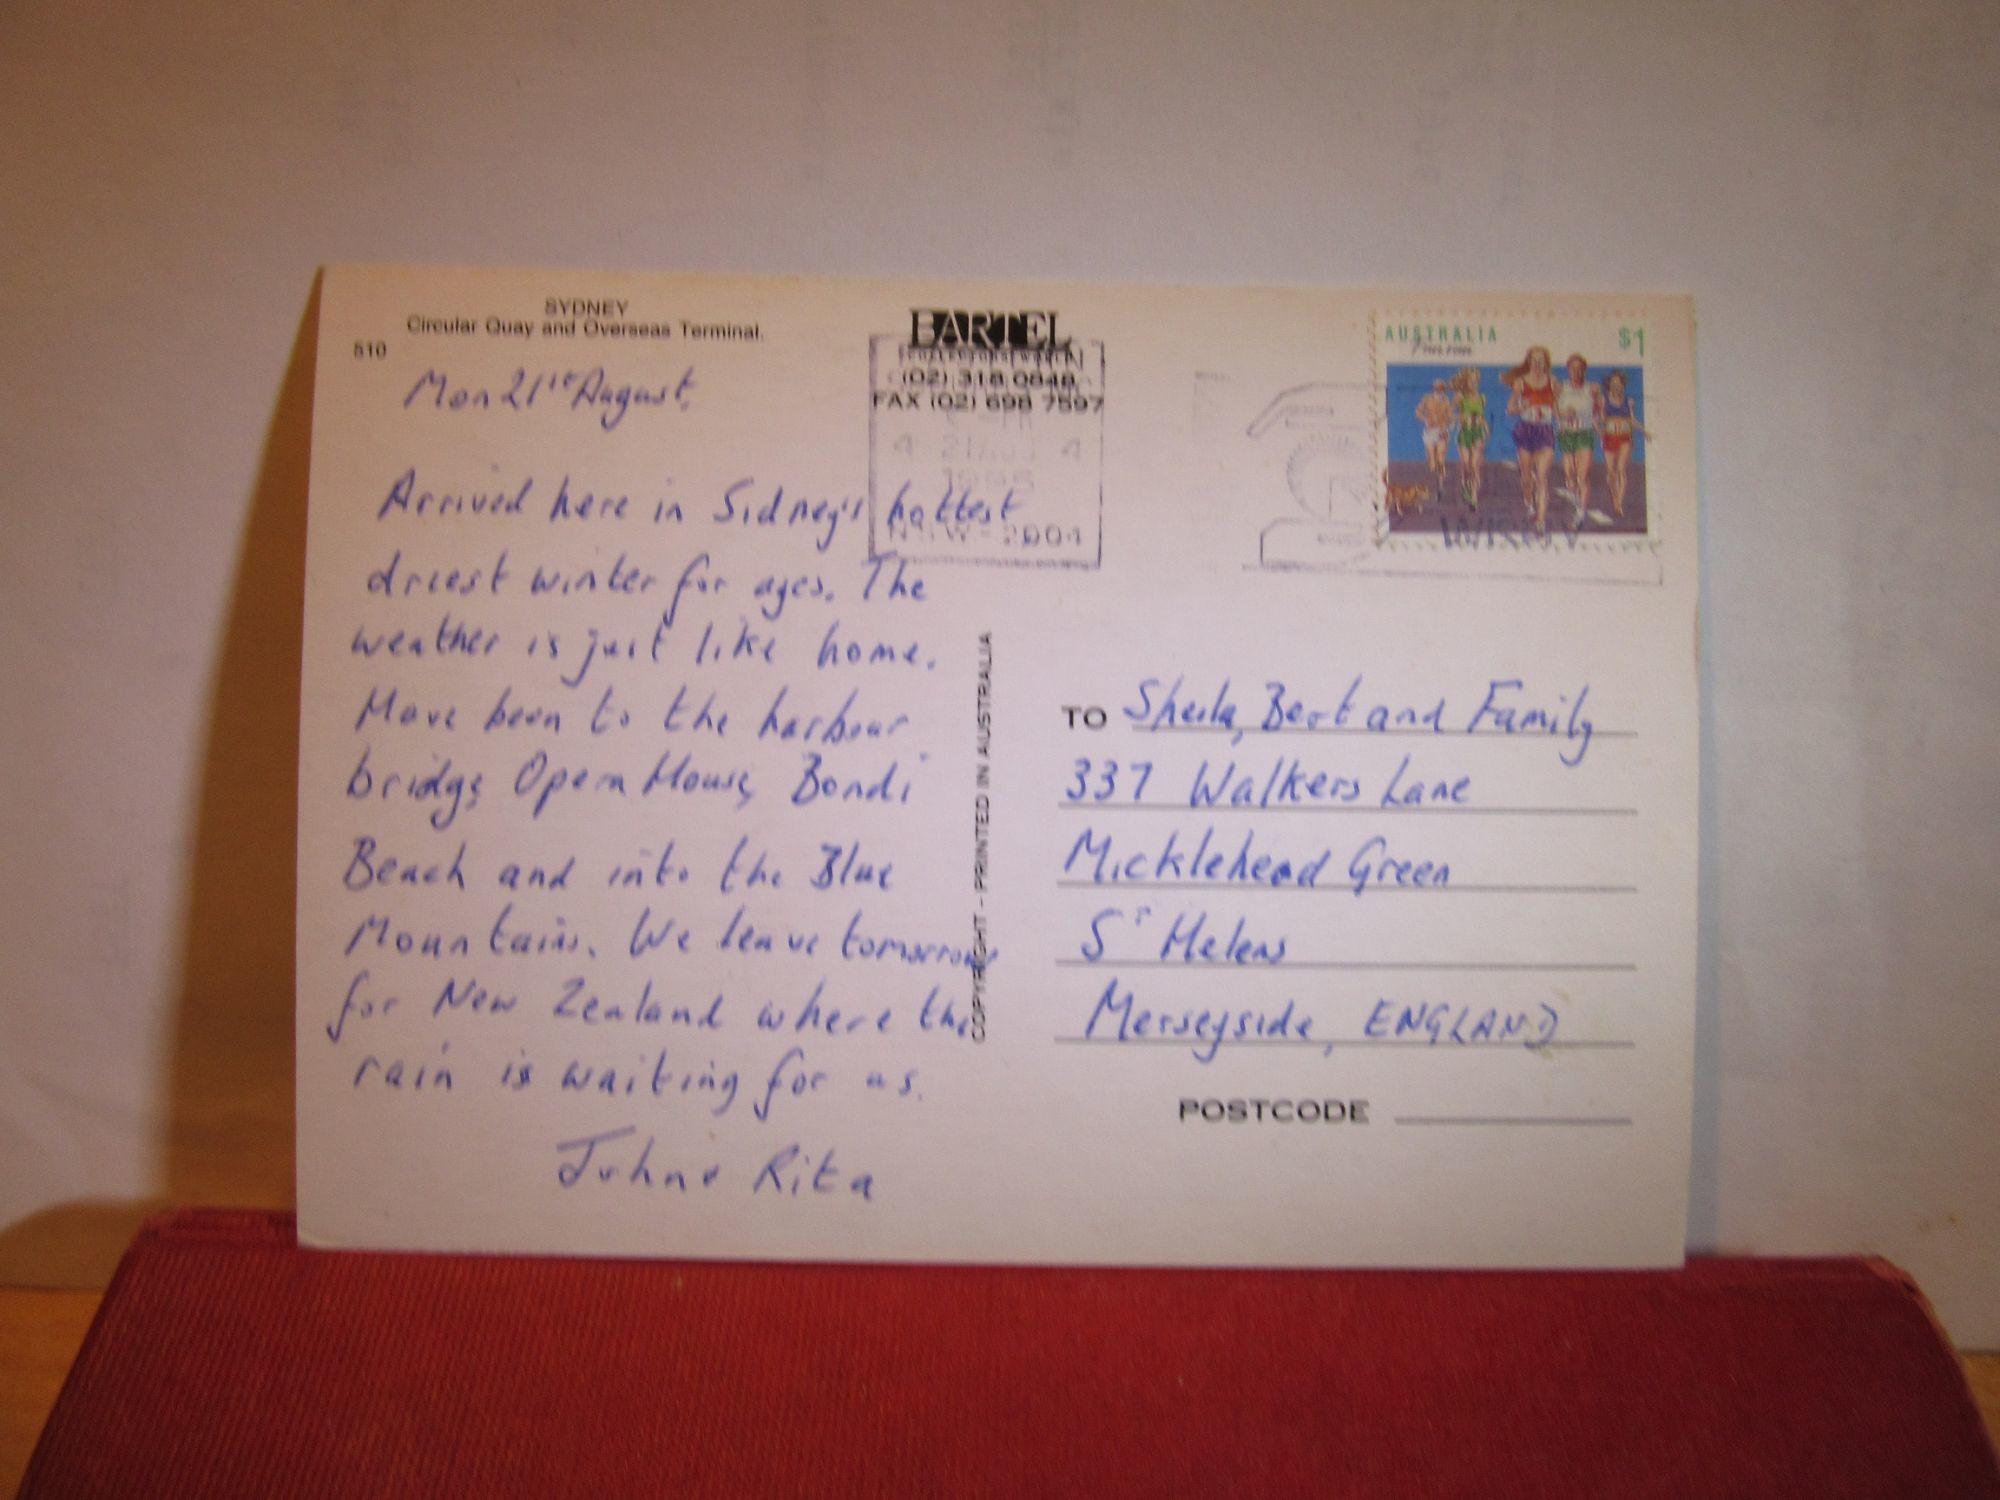 SYDNEY
Circular Quay and Overseas Terminal.
510
BARTEL
(02) 318 0848
FAX (02) 698 7597
4 21 AUG 4
1995
NSW - 2004
AUSTRALIA
$1
Mon 21st August.
Arrived here in Sidney's hottest
driest winter for ages. The
weather is just like home.
Have been to the harbour
bridge, Opera House, Bondi
Beach and into the Blue
Mountains. We leave tomorrow
for New Zealand where the
rain is waiting for us.
John & Rita
COPYRIGHT - PRINTED IN AUSTRALIA
TO Sheila, Bert and Family
337 Walkers Lane
Micklehead Green
St Helens
Merseyside, ENGLAND
POSTCODE